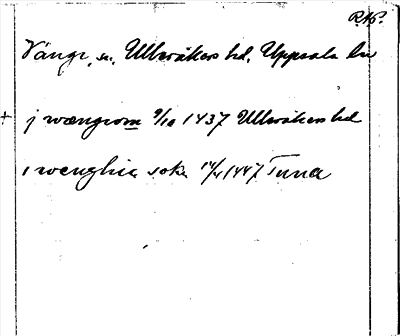 RAP.
Vänge, sn, Ulleråkers hd, Uppsala län
+ j wængiom 9/10 1437 Ulleråkers hd
i wenghia sokn 14/4 1447 Tuna